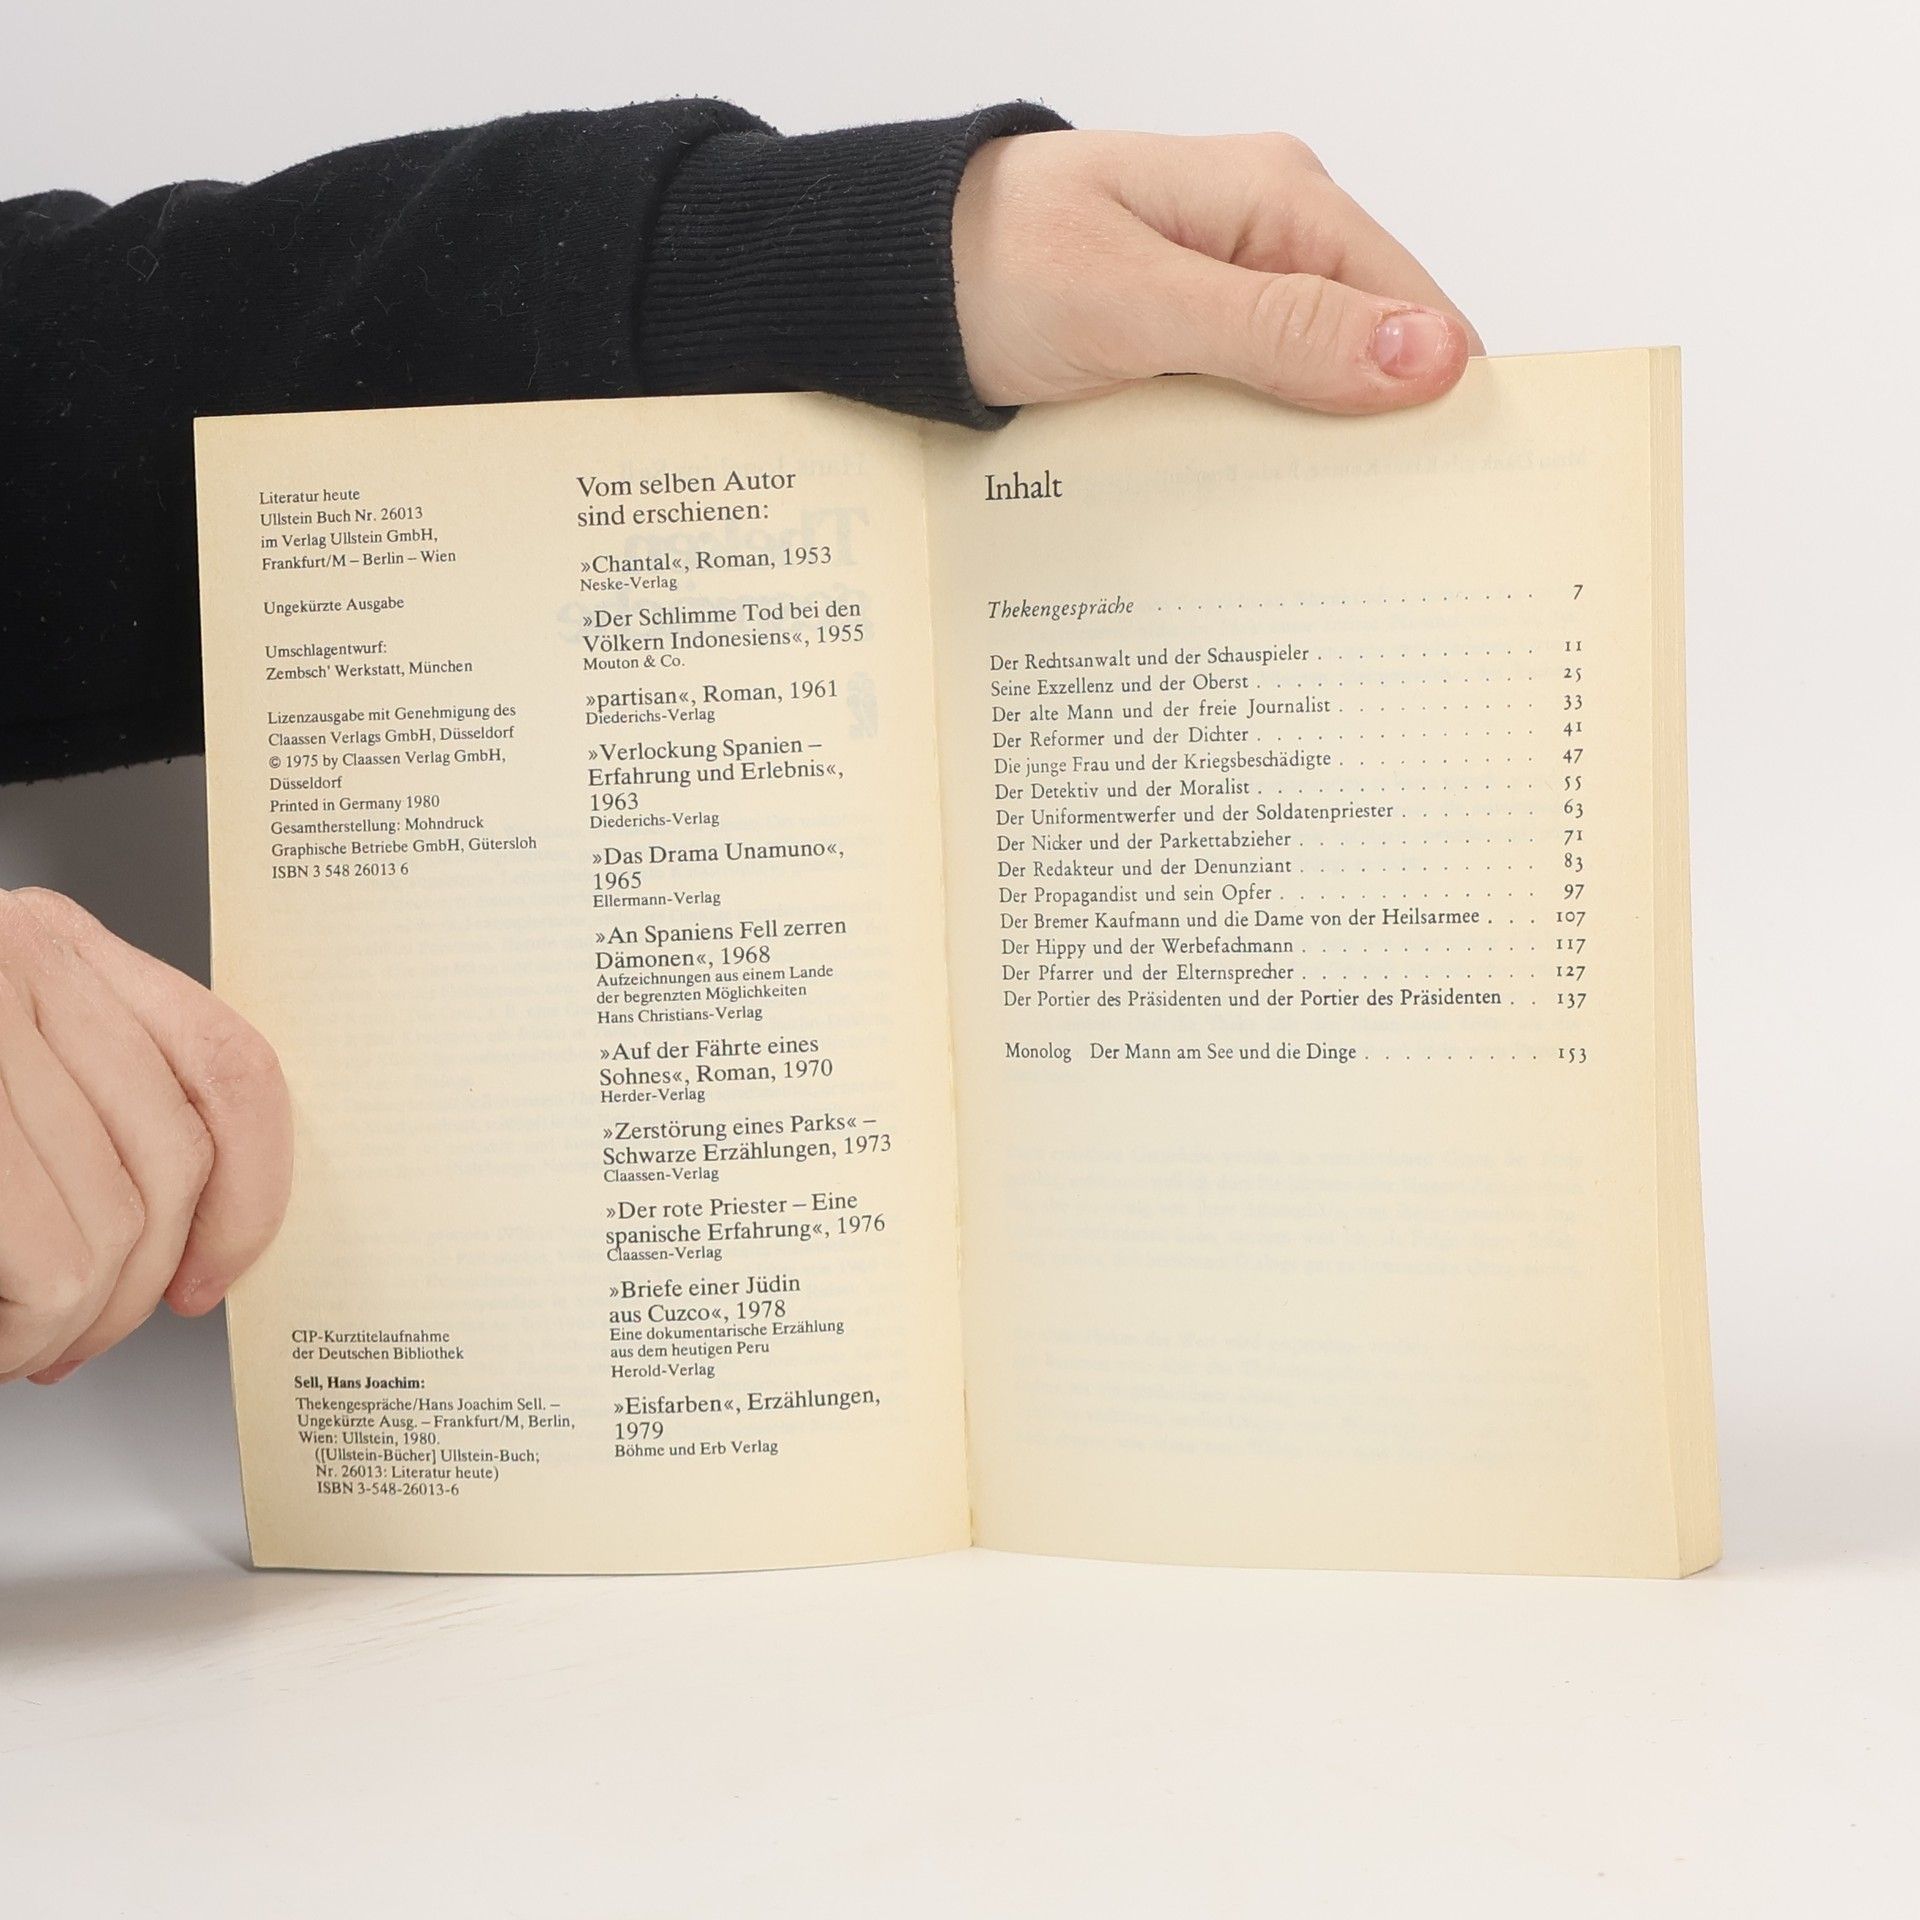 Literatur heute
Ullstein Buch Nr. 26013
im Verlag Ullstein GmbH,
Frankfurt/M – Berlin – Wien
Ungekürzte Ausgabe
Umschlagentwurf:
Zembsch' Werkstatt, München
Lizenzausgabe mit Genehmigung des
Claassen Verlags GmbH, Düsseldorf
© 1975 by Claassen Verlag GmbH,
Düsseldorf
Printed in Germany 1980
Gesamtherstellung: Mohndruck
Graphische Betriebe GmbH, Gütersloh
ISBN 3 548 26013 6
CIP-Kurztitelaufnahme
der Deutschen Bibliothek
Sell, Hans Joachim:
Thekengespräche/Hans Joachim Sell. –
Ungekürzte Ausg. – Frankfurt/M, Berlin,
Wien: Ullstein, 1980.
([Ullstein-Bücher] Ullstein-Buch;
Nr. 26013: Literatur heute)
ISBN 3-548-26013-6
Vom selben Autor
sind erschienen:
»Chantal«, Roman, 1953
Neske-Verlag
»Der Schlimme Tod bei den
Völkern Indonesiens«, 1955
Mouton & Co.
»partisan«, Roman, 1961
Diederichs-Verlag
»Verlockung Spanien –
Erfahrung und Erlebnis«,
1963
Diederichs-Verlag
»Das Drama Unamuno«,
1965
Ellermann-Verlag
»An Spaniens Fell zerren
Dämonen«, 1968
Aufzeichnungen aus einem Lande
der begrenzten Möglichkeiten
Hans Christians-Verlag
»Auf der Fährte eines
Sohnes«, Roman, 1970
Herder-Verlag
»Zerstörung eines Parks« –
Schwarze Erzählungen, 1973
Claassen-Verlag
»Der rote Priester – Eine
spanische Erfahrung«, 1976
Claassen-Verlag
»Briefe einer Jüdin
aus Cuzco«, 1978
Eine dokumentarische Erzählung
aus dem heutigen Peru
Herold-Verlag
»Eisfarben«, Erzählungen,
1979
Böhme und Erb Verlag
Inhalt
Thekengespräche . . . . . . . . . . . . . . . . . . 7
Der Rechtsanwalt und der Schauspieler . . . . . . . . . . . 11
Seine Exzellenz und der Oberst . . . . . . . . . . . . . . 25
Der alte Mann und der freie Journalist . . . . . . . . . . 33
Der Reformer und der Dichter . . . . . . . . . . . . . . 41
Die junge Frau und der Kriegsbeschädigte . . . . . . . . . . 47
Der Detektiv und der Moralist . . . . . . . . . . . . . . 55
Der Uniformentwerfer und der Soldatenpriester . . . . . . . 63
Der Nicker und der Parkettabzieher . . . . . . . . . . . . 71
Der Redakteur und der Denunziant . . . . . . . . . . . . 83
Der Propagandist und sein Opfer . . . . . . . . . . . . . 97
Der Bremer Kaufmann und die Dame von der Heilsarmee . . . 107
Der Hippy und der Werbefachmann . . . . . . . . . . . . 117
Der Pfarrer und der Elternsprecher . . . . . . . . . . . . 127
Der Portier des Präsidenten und der Portier des Präsidenten . . 137
Monolog Der Mann am See und die Dinge . . . . . . . . . 153